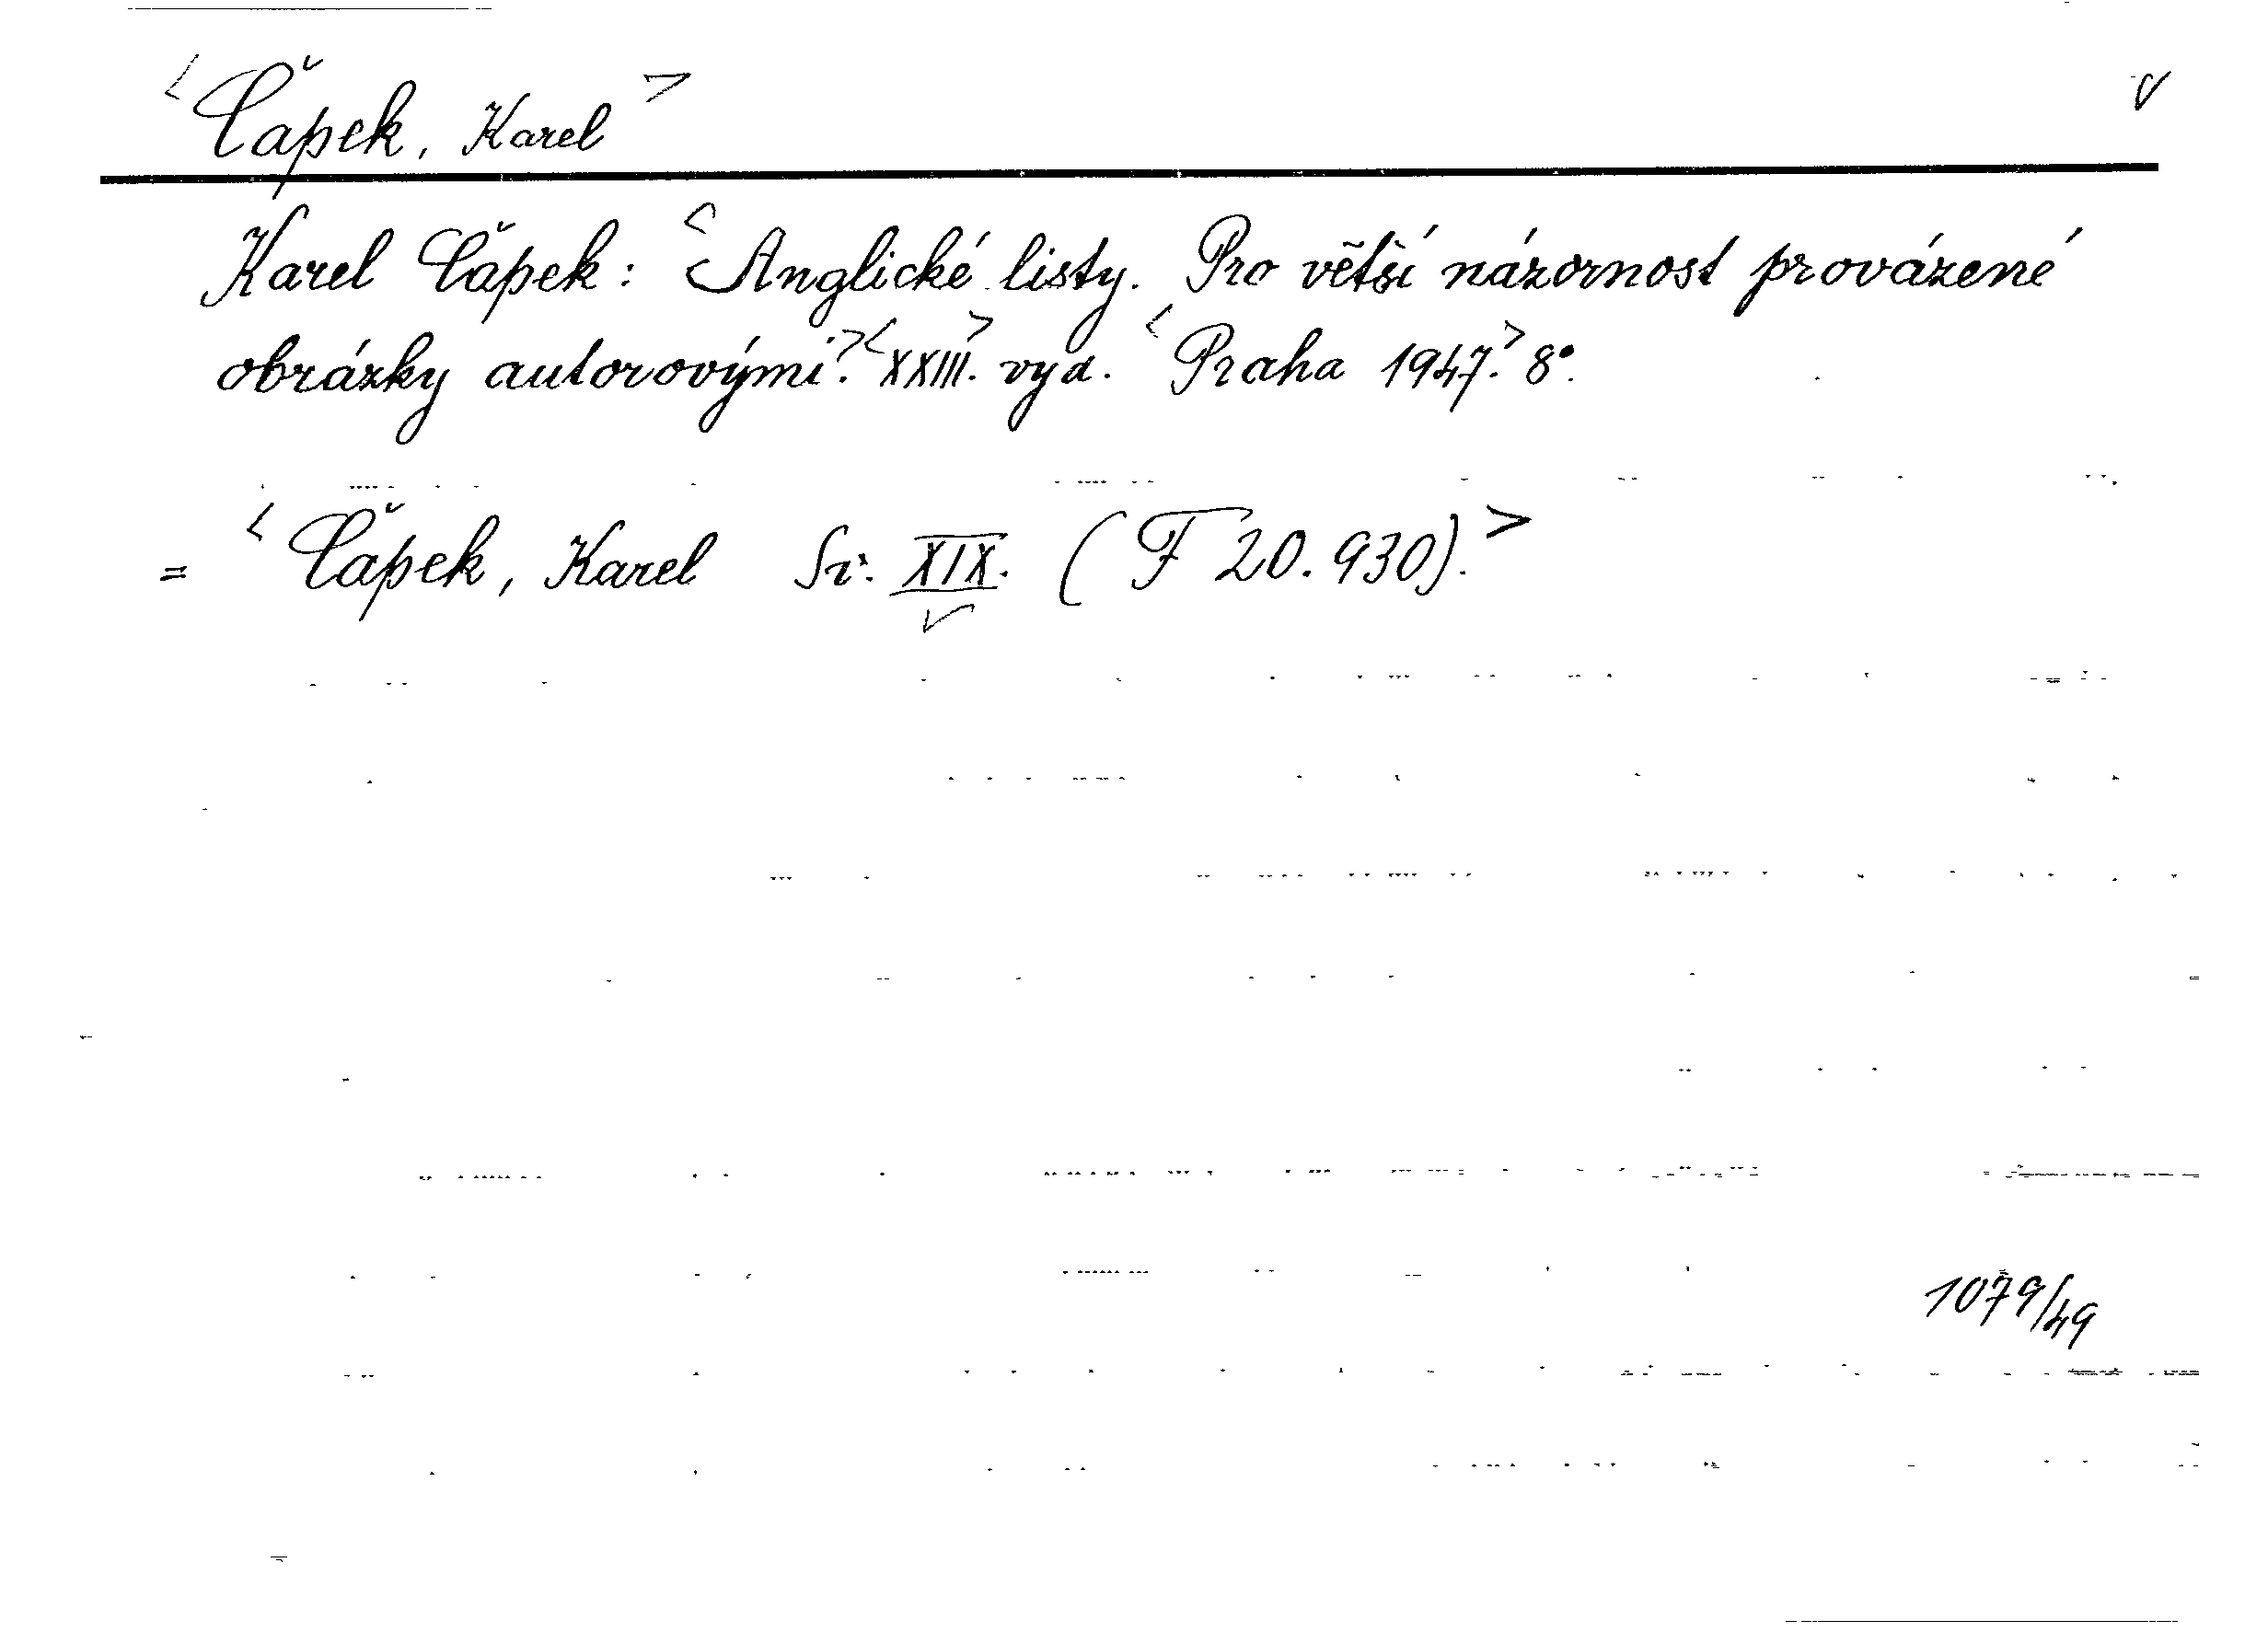 <Čapek, Karel>
Karel Čapek: <Anglické listy. Pro větší názornost provázené
obrázky autorovými.> <XXIII.> vyd. <Praha 1947.> 8°.
= <Čapek, Karel Sv. XIX. (F 20.930).>
1079/49